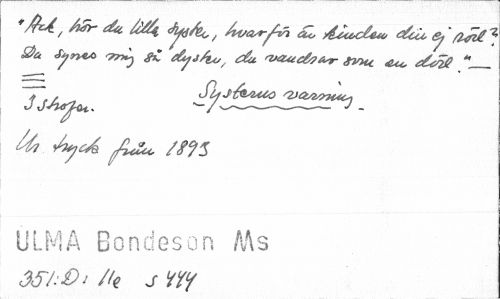 "Ack, hör du lilla syster, hvarför är kinden din ej röd?
Du synes mig så dyster, du vandrar som en död." —
3 strofer.
Systerns varning
Ur tryck från 1893
ULMA Bondeson Ms
351:D: 11e s 444